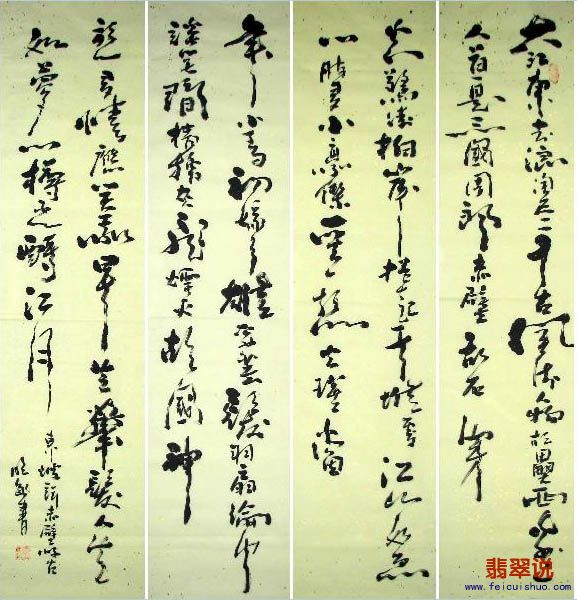 大江東去浪淘盡千古風流人物故壘西邊
人道是三國周郎赤壁亂石穿
空驚濤拍岸捲起千堆雪江山如畫
一時多少豪傑遙想公瑾當
年小喬初嫁了雄姿英發羽扇綸巾
談笑間檣櫓灰飛煙滅故國神
遊多情應笑我早生華髮人生
如夢一樽還酹江月
東坡詞赤壁懷古
書
翡翠说
www.feicuishuo.com